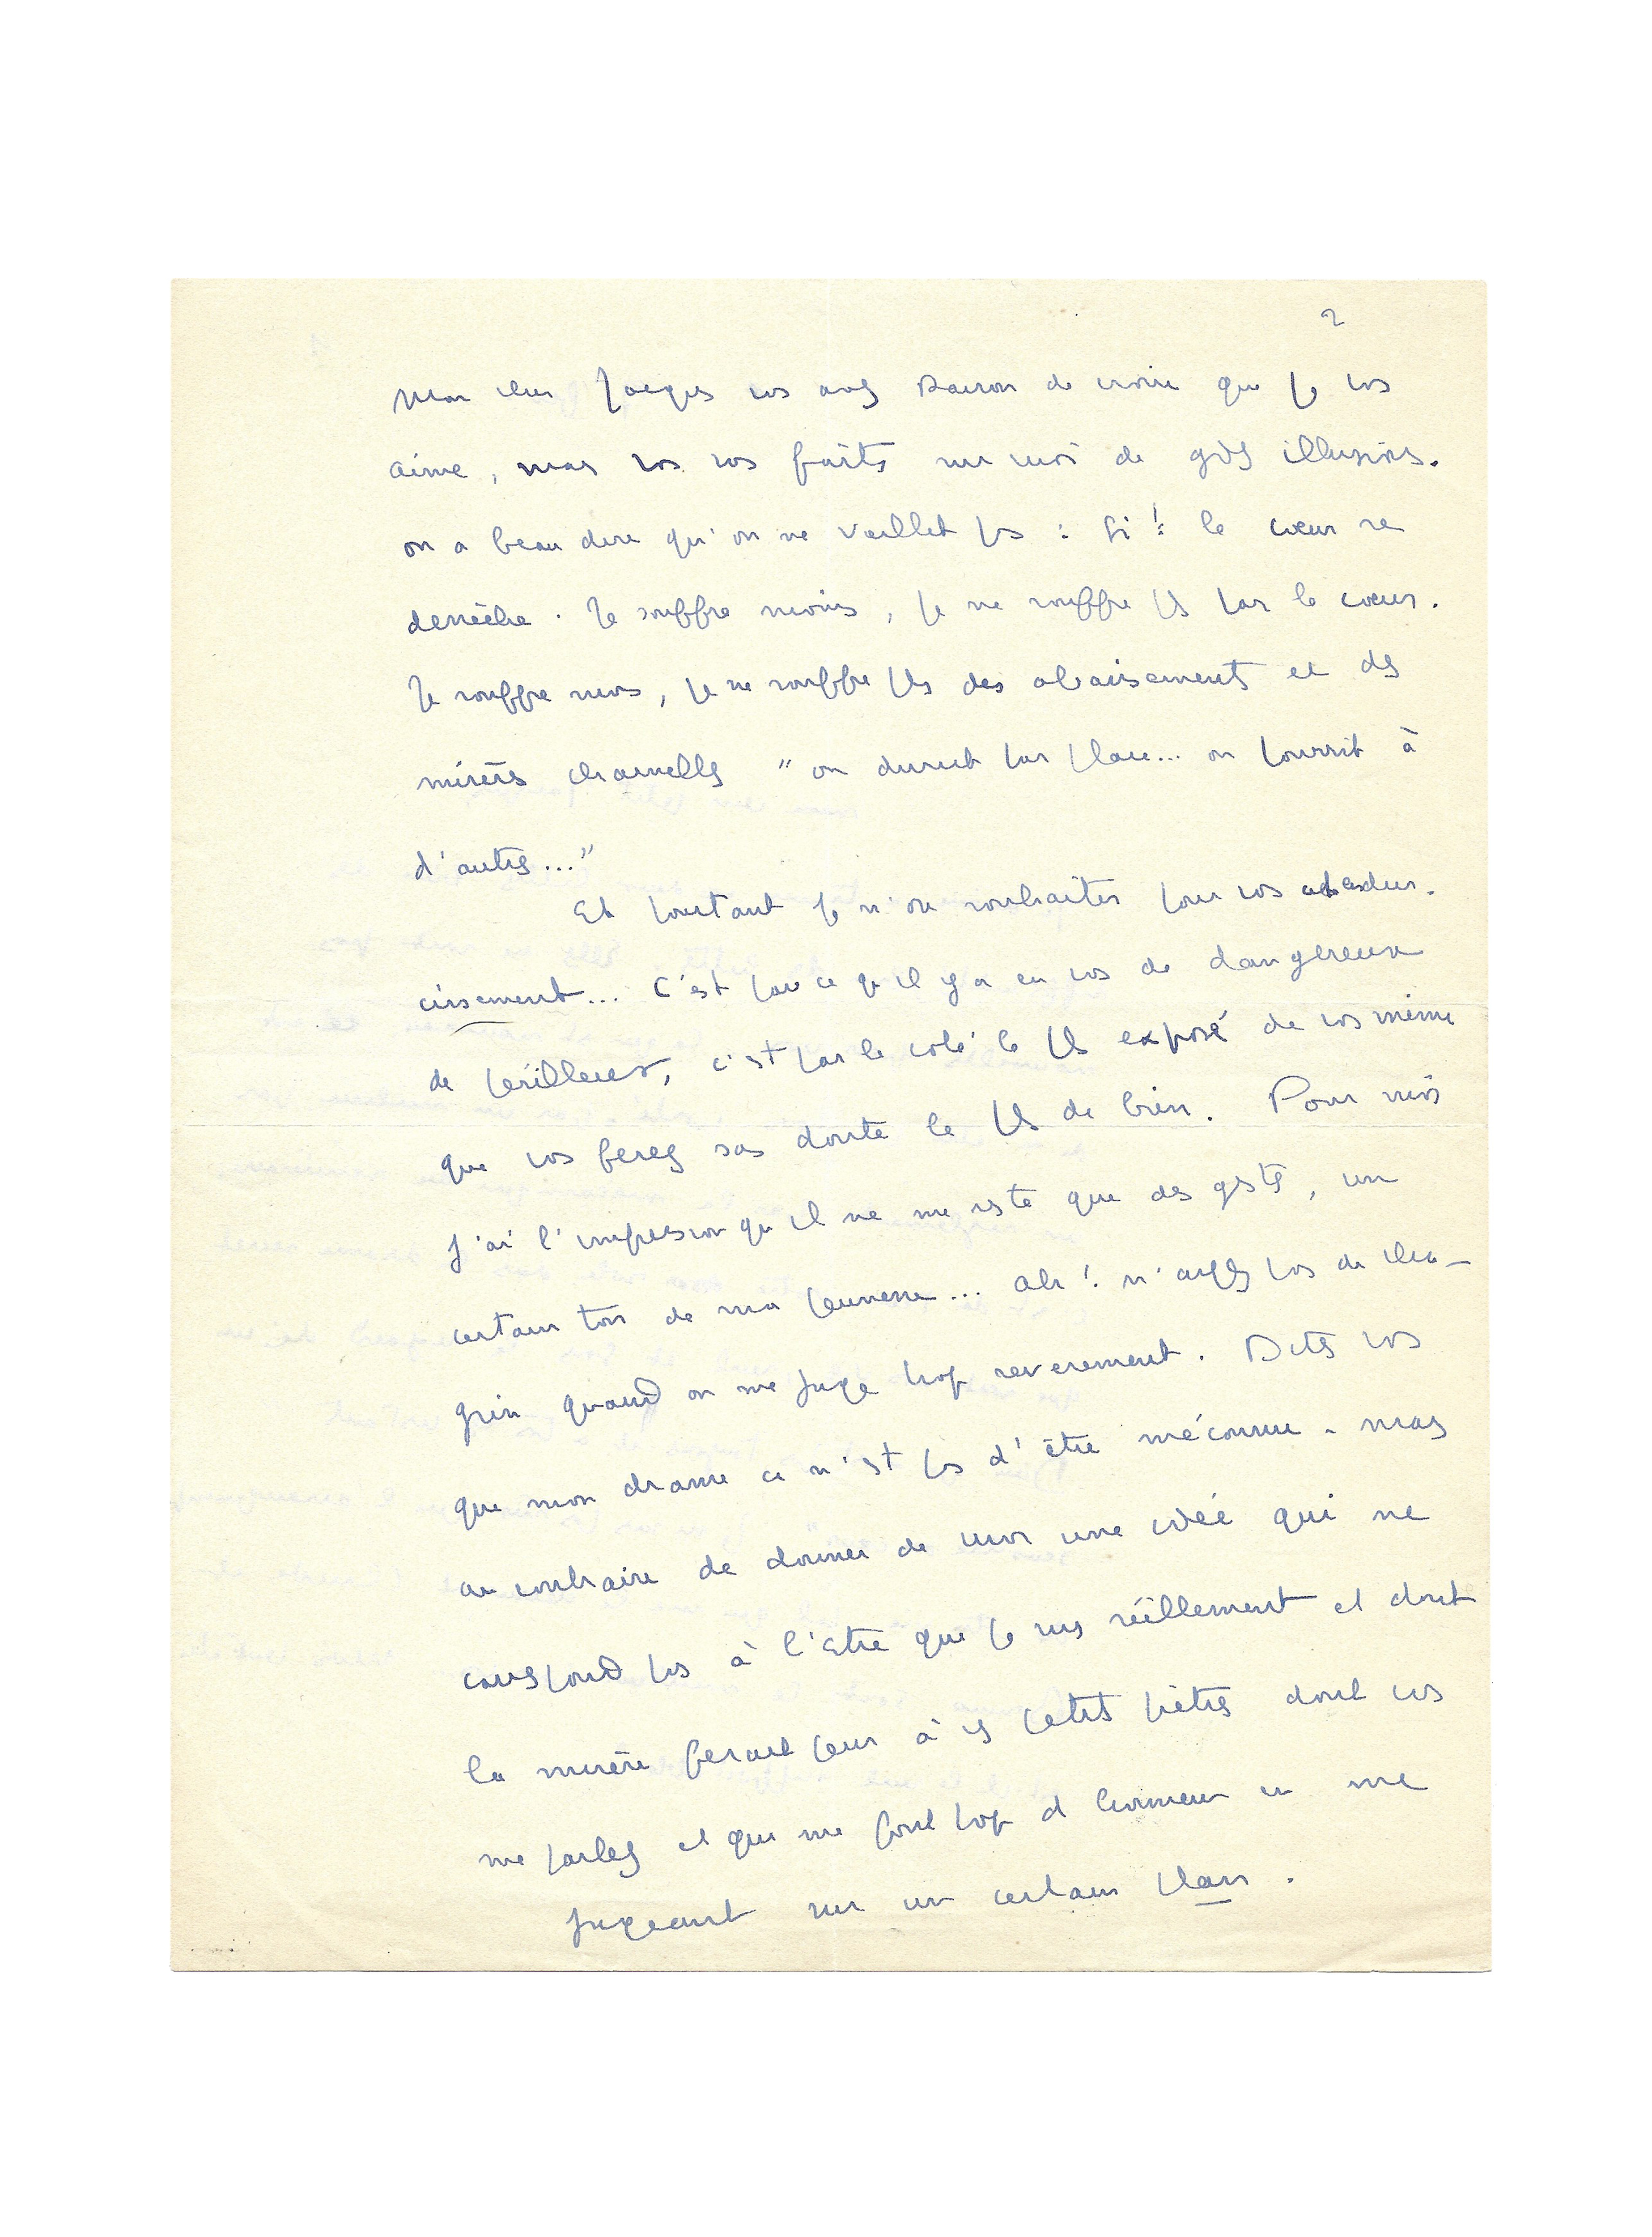 2
Mon cher Jacques vs avez raison de croire que je vs
aime, mais vs vs faites sur moi de gdes illusions.
on a beau dire qu'on ne vieillit ps : si ! le cœur se
dessèche. Je souffre moins, je ne souffre plus par le cœur.
Je souffre moins, je ne souffre plus des abaissements et des
misères charnelles " on durcit par place... on pourrit à
d'autres..."
Et pourtant je n'ose souhaiter pour vos adou-
cissement... C'est par ce qu'il y a en vs de dangereux
de périlleux, c'est par le coté le plus exposé de vs même
que vs ferez sas doute le plus de bien. Pour moi
j'ai l'impression qu'il ne me reste que des gestes, un
certain ton de ma jeunesse... Ah ! n'ayez pas de cha-
grin quand on me juge trop sévèrement. Dites vs
que mon drame ce n'est ps d'être méconnu - mais
au contraire de donner de moi une idée qui ne
correspond ps à l'être que je suis réellement et dont
la misère ferait peur à ces petits prêtres dont vs
me parlez et qui me font trop d'honneur en me
jugeant sur un certain plan.